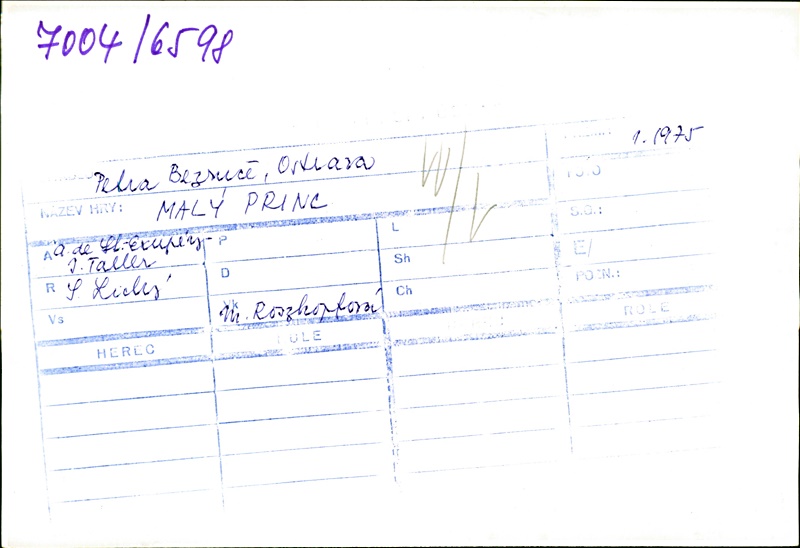 7004/6598
1.1975
Petra Bezruče, Ostrava
NÁZEV HRY: MALÝ PRINC
S.G.:
A A. de St. Exupéry- P L
J. Taller
E/
D Sh
R S.
POZN.:
Vs Vk M. Roszkopfová Ch
HEREC ROLE ROLE